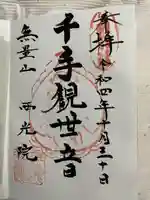 奉拝 令和四年十月三十日
千手観世音
無量山 西光院